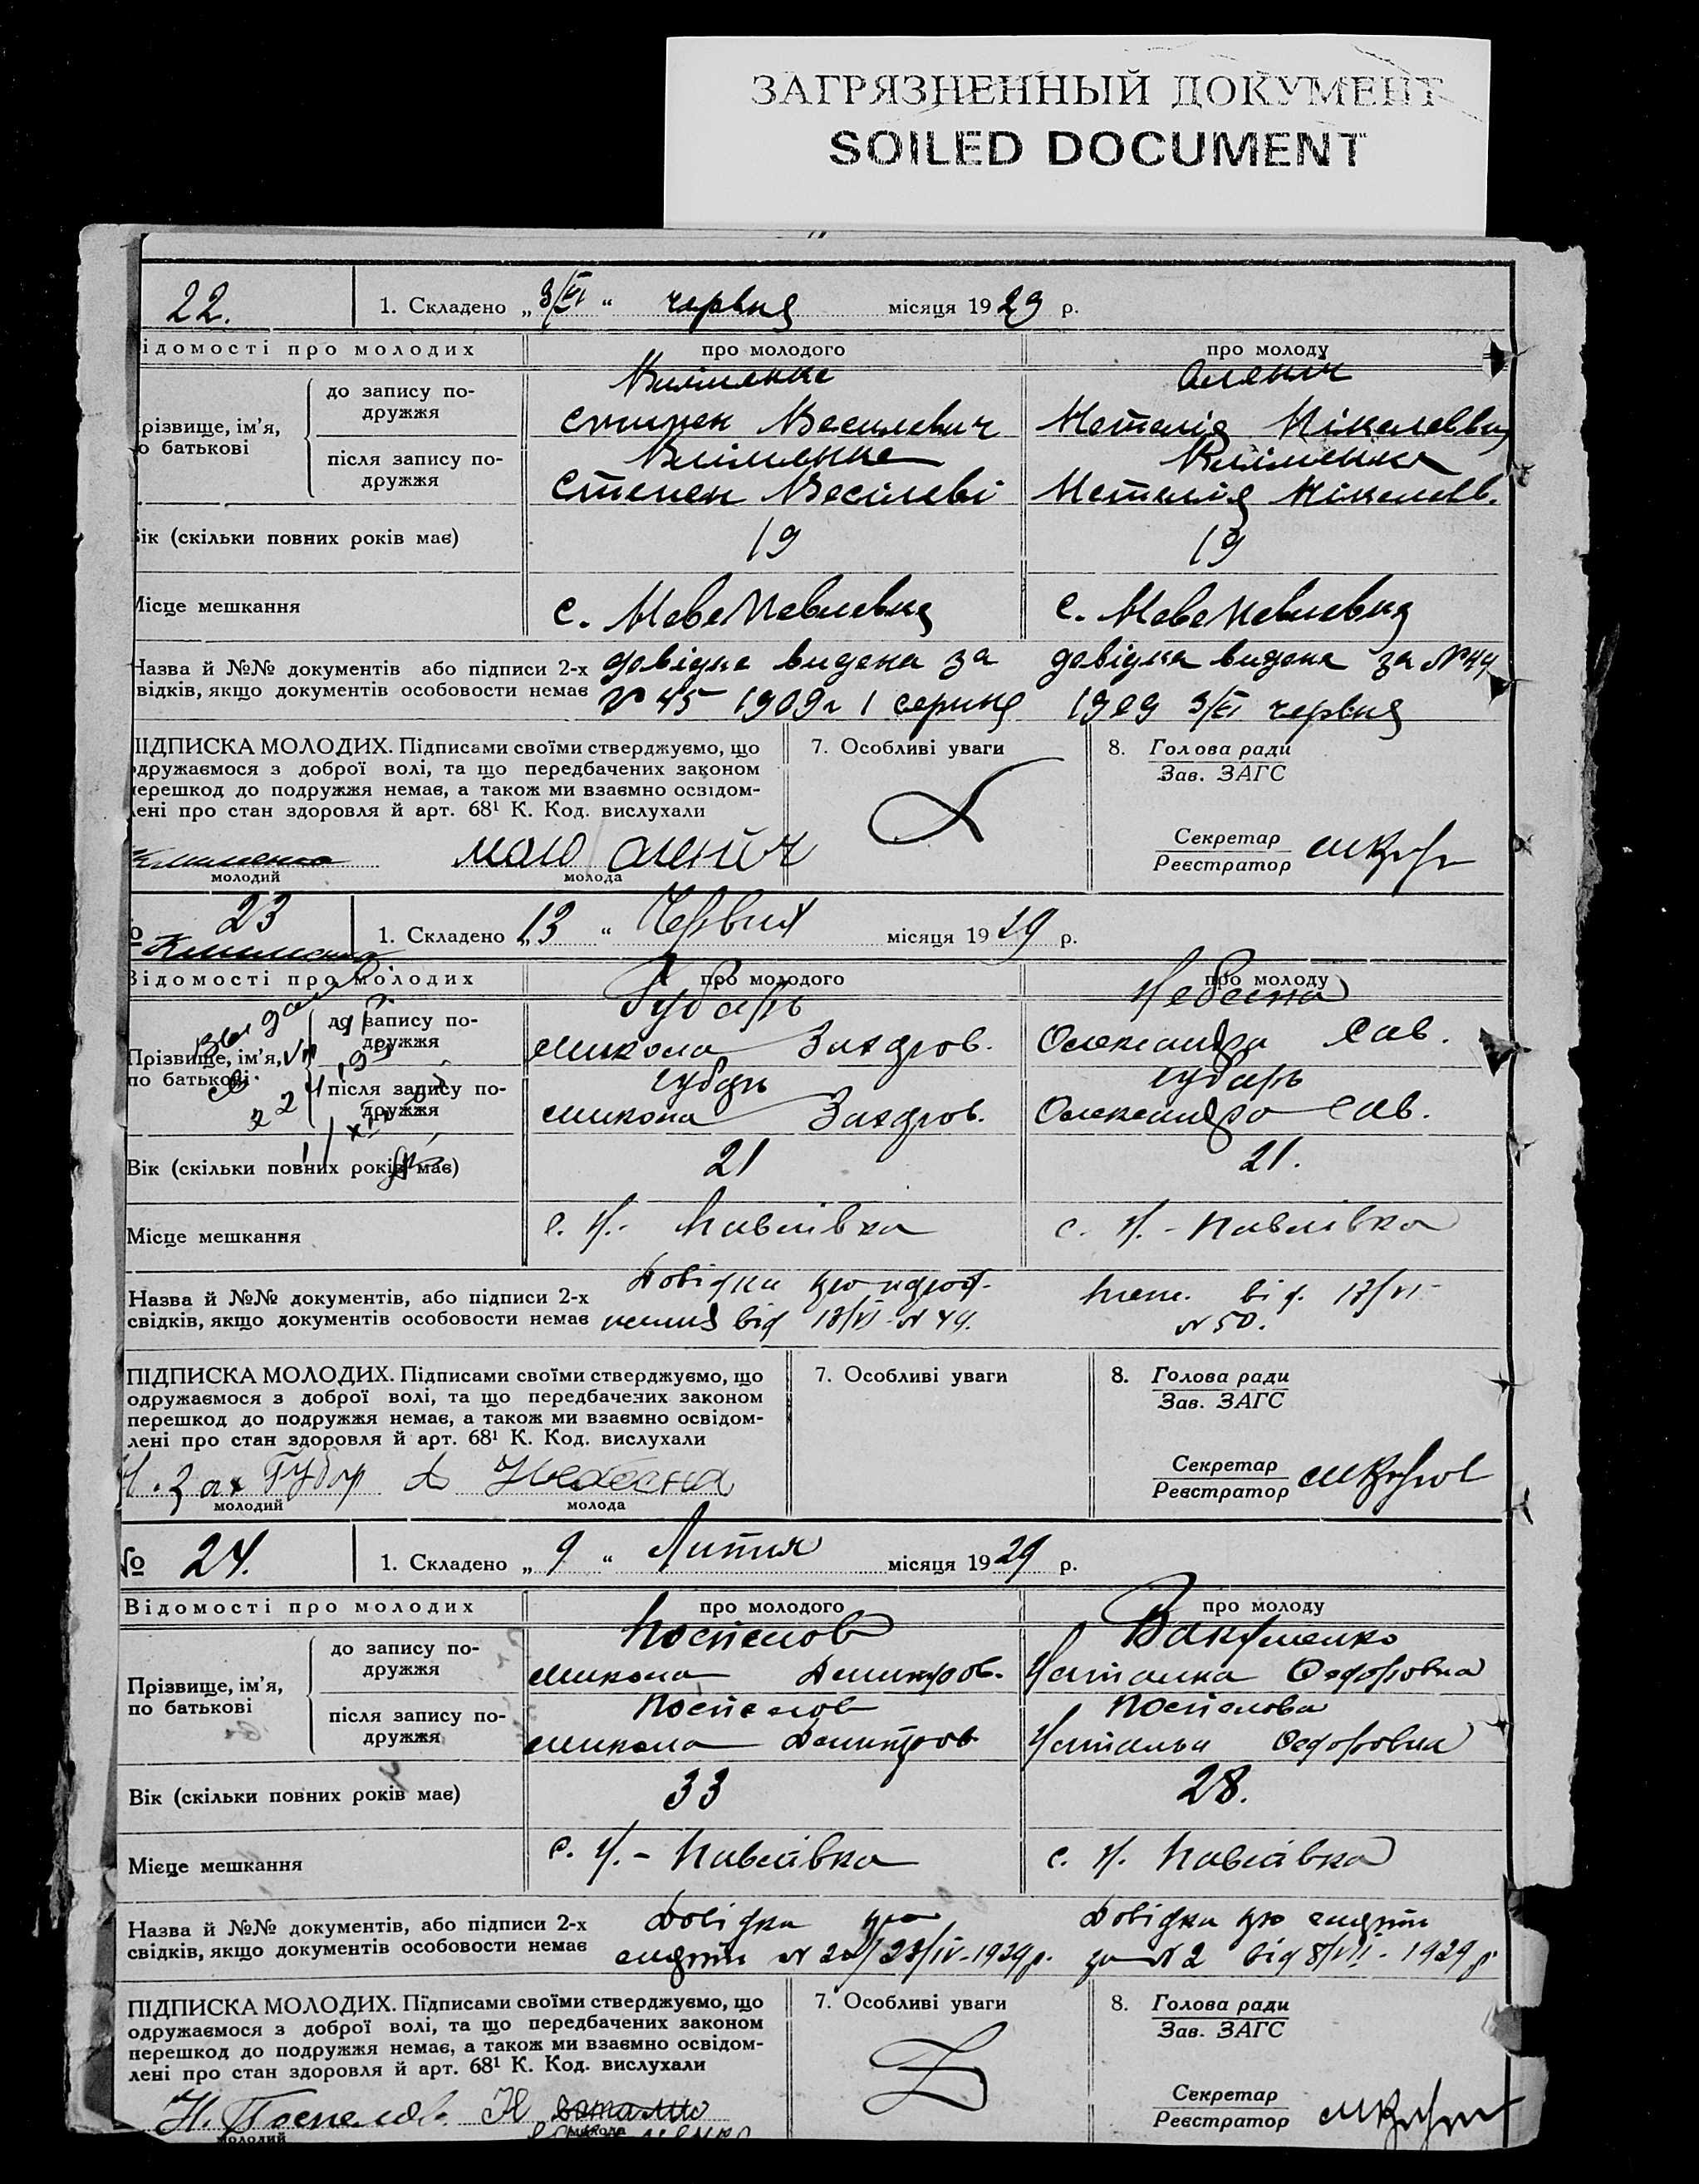 ЗАГРЯЗНЕННЫЙ ДОКУМЕНТ
SOILED DOCUMENT
22.
1. Складено „3/VI“ червня місяця 1929 р.
ідомості про молодих
про молодого
про молоду
різвище, ім'я,
о батькові
до запису по-
дружжя
Клименко
Василевич
Наталія
після запису по-
дружжя
Клименко
Степан Василеві
Клименко
Наталія
ік (скільки повних років має)
19
19
Місце мешкання
с. НовоПавлевка
с. НовоПавлевка
Назва й №№ документів або підписи 2-х
відків, якщо документів особовости немає
довідка видана за
№ 45 1909 1 серпня
довідка видана за № 44
1909 3/VI червня
ПІДПИСКА МОЛОДИХ. Підписами своїми стверджуємо, що
дружаємося з доброї волі, та що передбачених законом
ерешкод до подружжя немає, а також ми взаємно освідом-
ені про стан здоровля й арт. 68¹ К. Код. вислухали
Клименко
молодий
молода
7. Особливі уваги
8. Голова ради
Зав. ЗАГС
Секретар
Реєстратор
23
1. Складено „13“ Червня місяця 1929 р.
Клименко
Відомості про молодих
про молодого
про молоду
Прізвище, ім'я,
по батькові
до запису по-
дружжя
Губарь
Микола Захаров.
Небесна
Олександра Сав.
після запису по-
дружжя
Губарь
Микола Захаров.
Губарь
Олександра Сав.
Вік (скільки повних років має)
21
21.
Місце мешкання
с. Н.- Павлівка
с. Н.- Павлівка
Назва й №№ документів, або підписи 2-х
свідків, якщо документів особовости немає
Довідка про
від 13/VI № 49.
від. 13/VI
№ 50.
ПІДПИСКА МОЛОДИХ. Підписами своїми стверджуємо, що
одружаємося з доброї волі, та що передбачених законом
перешкод до подружжя немає, а також ми взаємно освідом-
лені про стан здоровля й арт. 68¹ К. Код. вислухали
Зах Губар
Небесна
молодий
молода
7. Особливі уваги
8. Голова ради
Зав. ЗАГС
Секретар
Реєстратор
№ 24.
1. Складено „9“ Липня місяця 1929 р.
Відомості про молодих
про молодого
про молоду
Прізвище, ім'я,
по батькові
до запису по-
дружжя
Поспелов
Микола Дмитров.
Вакуменко
Наталка Федоровна
після запису по-
дружжя
Поспелов
Микола Дмитров
Поспелова
Наталья Федоровна
Вік (скільки повних років має)
33
28.
Місце мешкання
с. Н.- Павлівка
с. Н. Павлівка
Назва й №№ документів, або підписи 2-х
свідків, якщо документів особовости немає
Довідка про
23/IV-1929 р.
Довідка про
за № 2 від 8/VII- 1929 р
ПІДПИСКА МОЛОДИХ. Підписами своїми стверджуємо, що
одружаємося з доброї волі, та що передбачених законом
перешкод до подружжя немає, а також ми взаємно освідом-
лені про стан здоровля й арт. 68¹ К. Код. вислухали
Н. Поспелов. Н
молодий
молода
7. Особливі уваги
8. Голова ради
Зав. ЗАГС
Секретар
Реєстратор